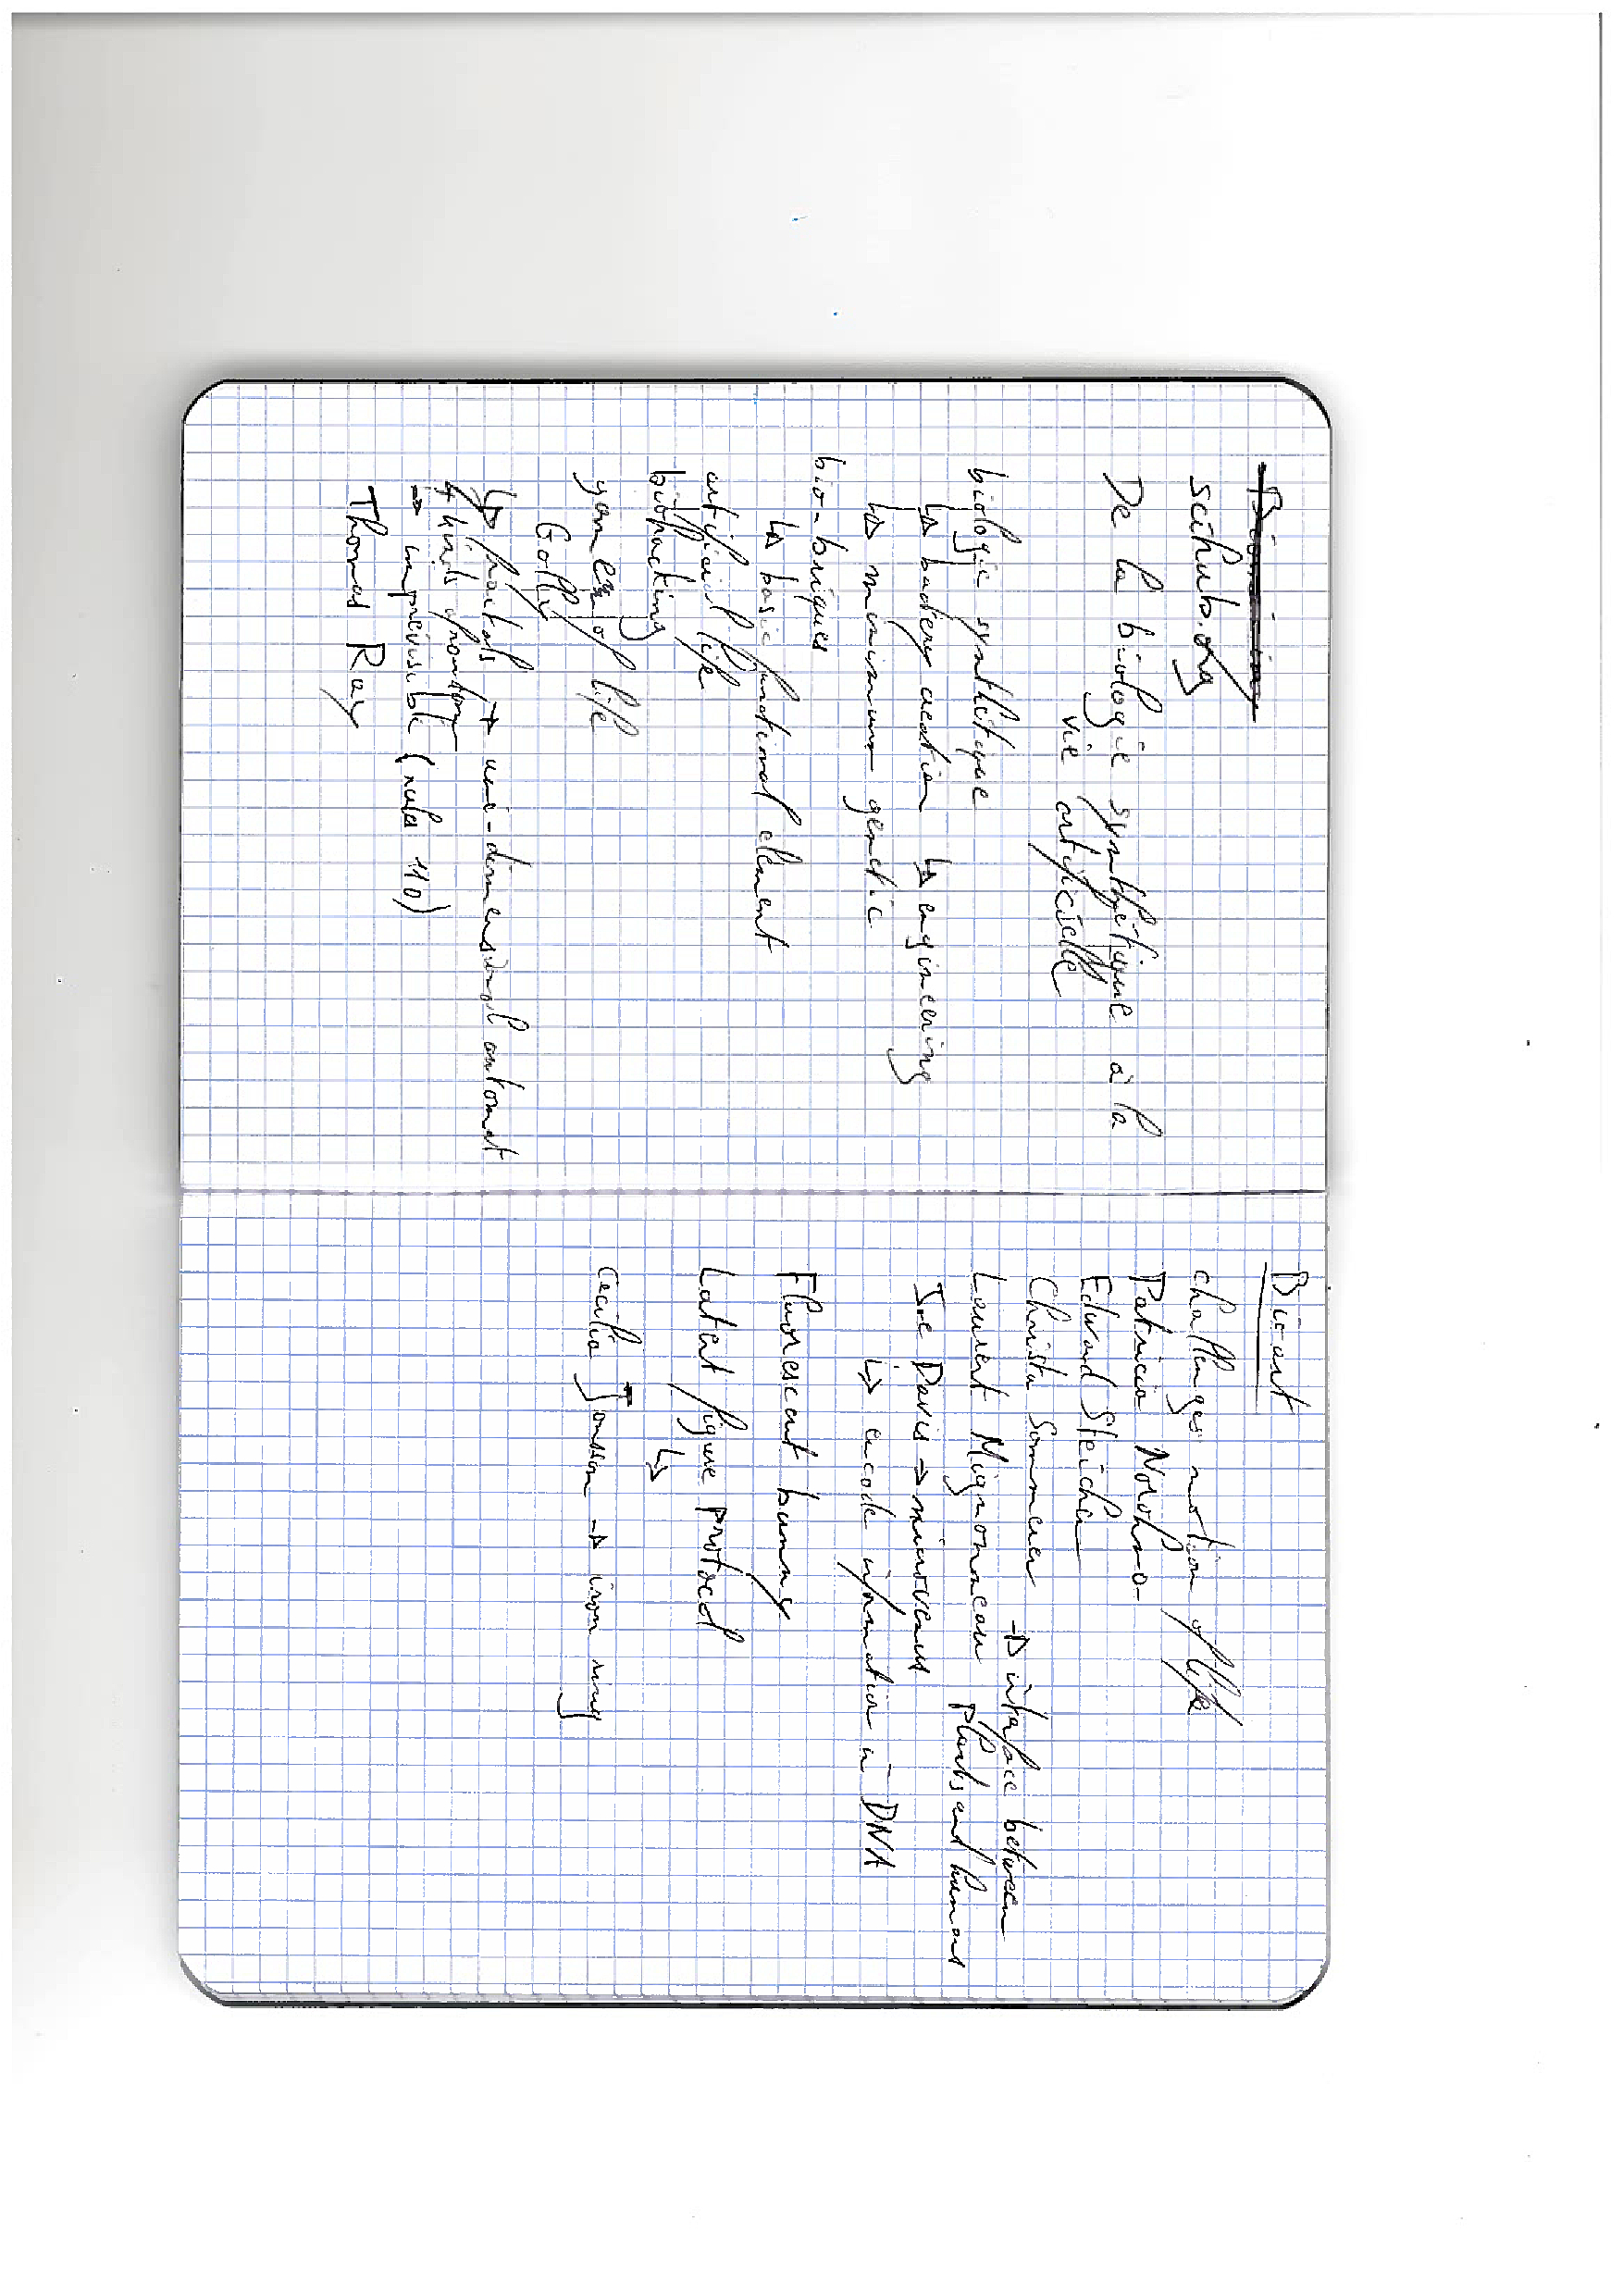 scihub.org
De la biologie synthétique à la
vie artificielle
biologie synthétique
↳ bactery creation ↳ engineering
↳ minimum genetic
bio-briques
↳ basic functional element
artificial life
biohacking
game of life
Golly
↳ fractals → uni-dimensional automat
4 kinds of
→ imprévisible (rule 110)
Thomas Ray
Bio-art
challenges notion of life
Patricia Noronha
Edward Steichen
Christa Sommerer → interface between
Laurent Mignonneau plants and human
Joe Davis → microvenus
↳ encode information in DNA
Fluorescent bunny
Latent figure protocol
↳
Cecilia Jonsson → iron ring